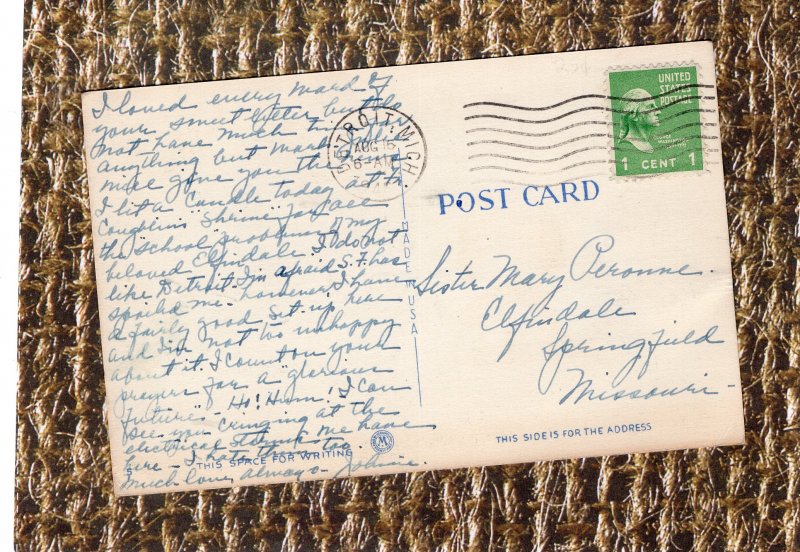 I loved every word of
your sweet letter but do
not have much time for
anything but
gave you the
I lit a "Candle" today at Fr.
Coughlins "Shrine" for all
the "school" problems of my
beloved Elfindale. I do not
like Detroit. I'm afraid S. F. has
spoiled me. however I have
a fairly good set up here
and I'm not too unhappy
about it. I count on your
prayers for a "glorious
future" - Ho! Hum! I can
see you cringing at the
electrical storms we have
here - I hate them too.
Much love, Always - Johnnie.
THIS SPACE FOR WRITING
MADE IN USA
DETROIT, MICH.
AUG 16
6 - AM
UNITED
STATES
POSTAGE
GEORGE WASHINGTON
1 CENT 1
POST CARD
Sister Mary Peronne.
Elfindale
Springfield
Missouri -
THIS SIDE IS FOR THE ADDRESS